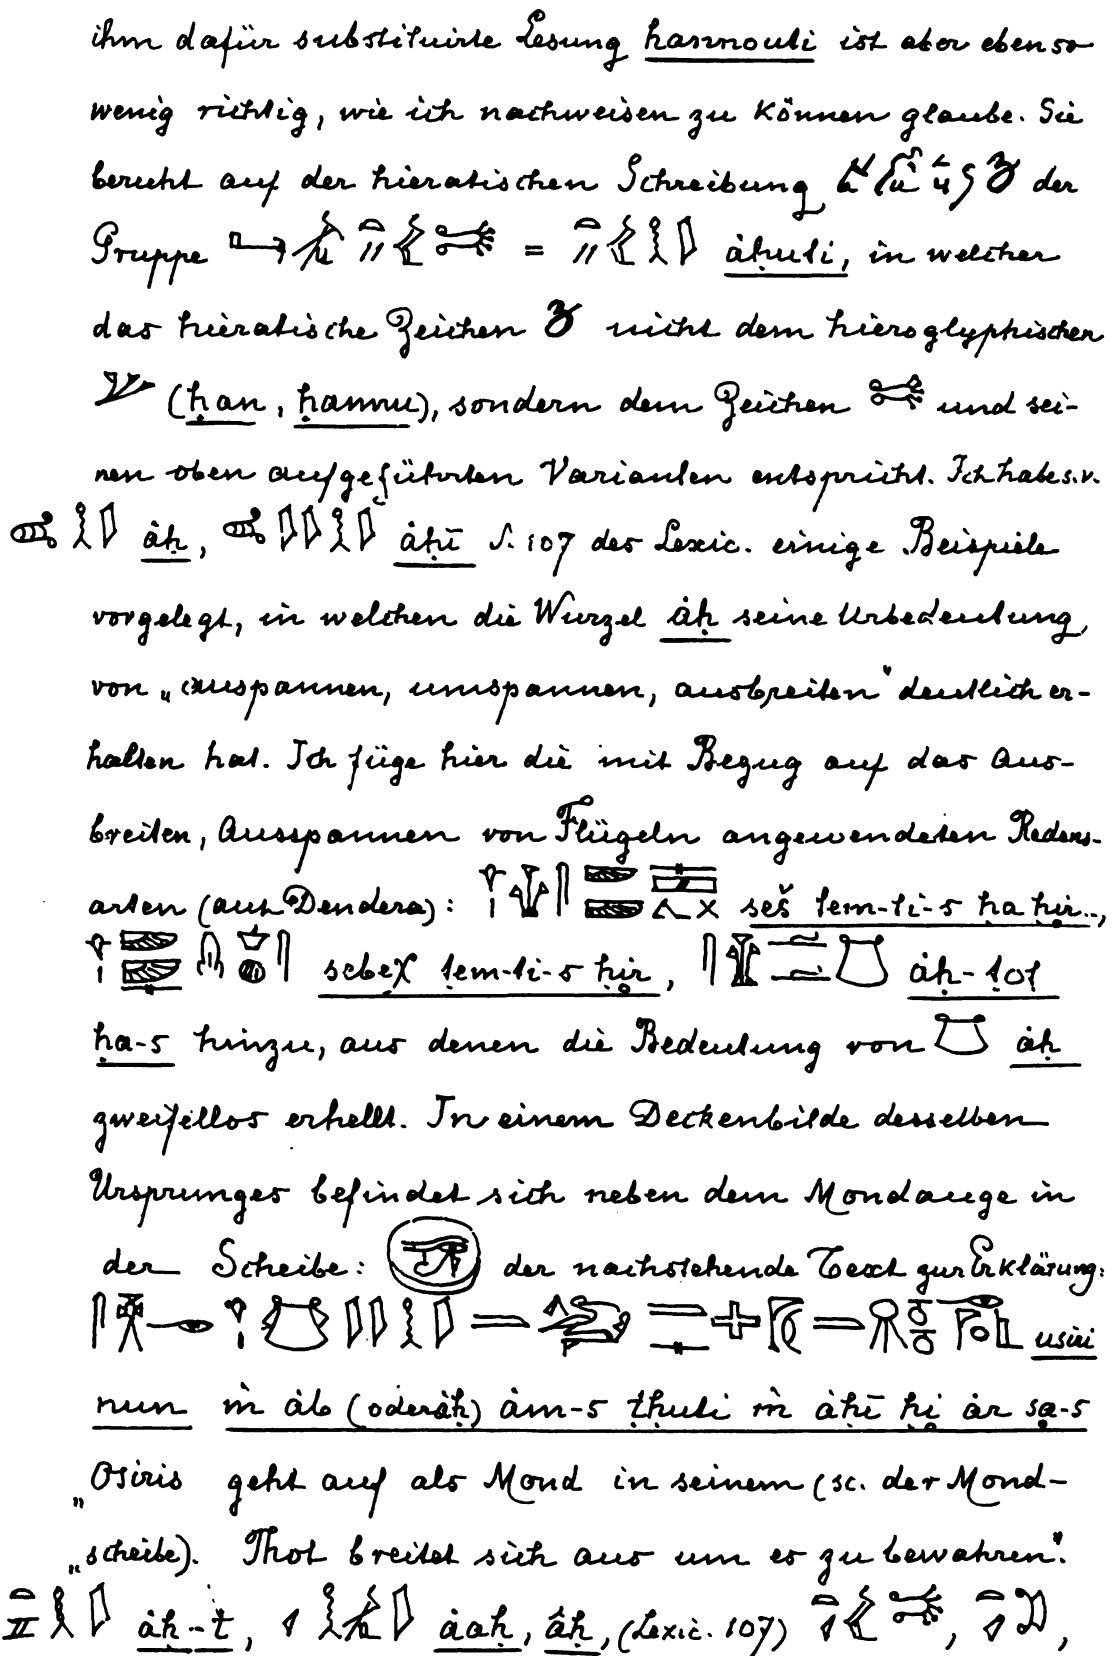 ihm dafür substituirte Lesung hannouti ist aber ebenso
wenig richtig, wie ich nachweisen zu können glaube. Sie
beruht auf der hieratischen Schreibung der
Gruppe = ȧḥuti, in welcher
das hieratische Zeichen nicht dem hieroglyphischen
(ḥan, ḥannu), sondern dem Zeichen und sei-
nen oben aufgeführten Varianten entspricht. Ich habe s.v.
ȧḥ, ȧḥī S. 107 des Lexic. einige Beispiele
vorgelegt, in welchen die Wurzel ȧḥ seine Urbedeutung
von „auspannen, umspannen, ausbreiten" deutlich er-
halten hat. Ich füge hier die mit Bezug auf das Aus-
breiten, Ausspannen von Flügeln angewendeten Redens-
arten (aus Dendera): seš tem-ti-s ḥa ḥir..,
sebeχ tem-ti-s ḥir, ȧḥ-tot
ḥa-s hinzu, aus denen die Bedeutung von ȧḥ
zweifellos erhellt. In einem Deckenbilde desselben
Ursprunges befindet sich neben dem Mondauge in
der Scheibe: der nachstehende Text zur Erklärung:
usiri
nun m̀ ȧb (oder ȧḥ) ȧm-s ṭḥuti m̀ ȧḥī ḥi ȧr sa-s
„Osiris geht auf als Mond in seinem (sc. der Mond-
„scheibe). Thot breitet sich aus um es zu bewahren".
ȧḥ-t, ȧaḥ, âḥ, (Lexic. 107) , ,